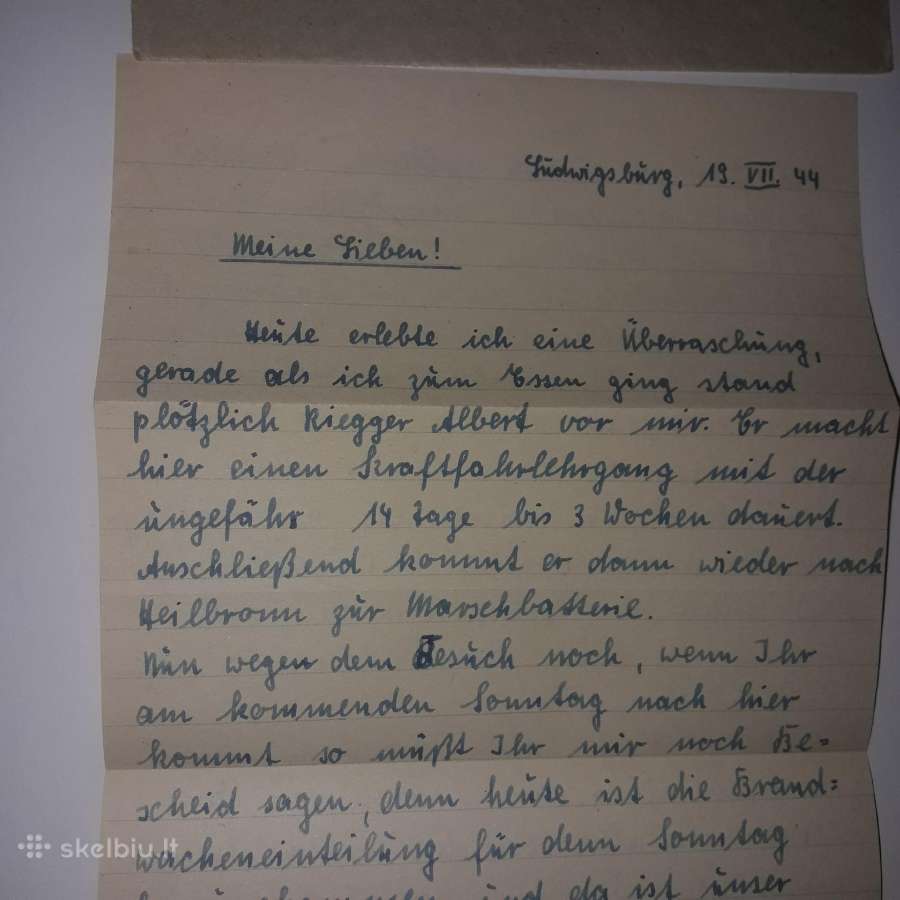 Ludwigsburg, 19. VII. 44
Meine Lieben!
Heute erlebte ich eine Überraschung,
gerade als ich zum Essen ging stand
plötzlich Riegger Albert vor mir. Er macht
hier einen Kraftfahrlehrgang mit der
ungefähr 14 Tage bis 3 Wochen dauert.
Anschließend kommt er dann wieder nach
Heilbronn zur Marschbatterie.
Nun wegen dem Besuch noch, wenn Ihr
am kommenden Sonntag nach hier
kommt so müßt Ihr mir noch Be=
scheid sagen, denn heute ist die Brand=
wacheneinteilung für denn Sonntag
und da ist unser
skelbiu.lt